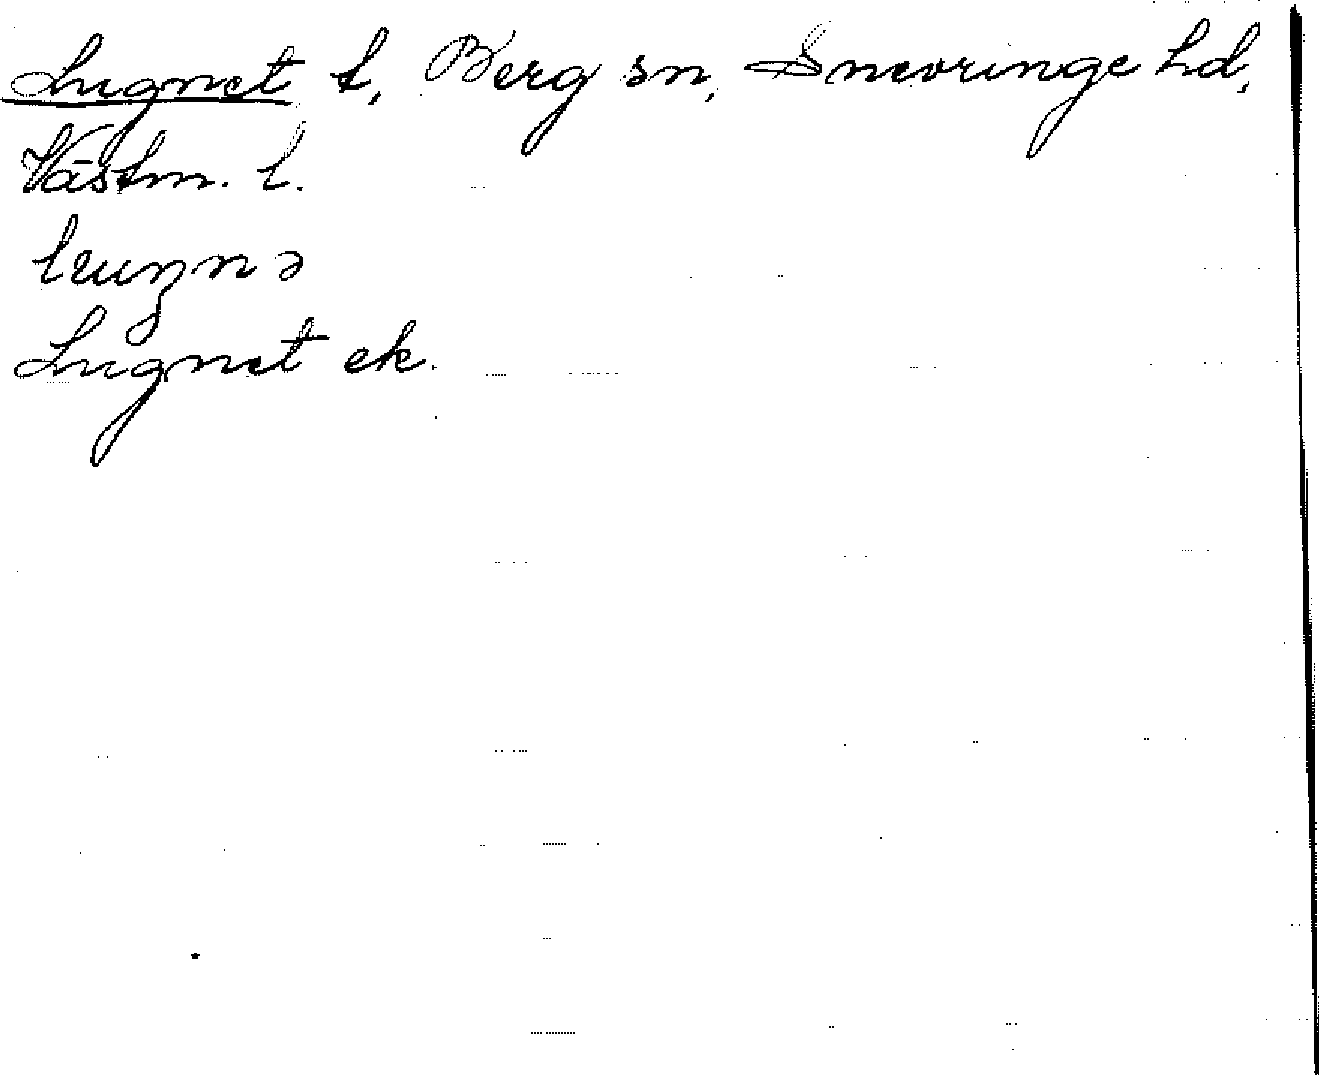 Lugnet t, Berg sn, Snevringe hd,
Västm. l.
Lugnet ek.